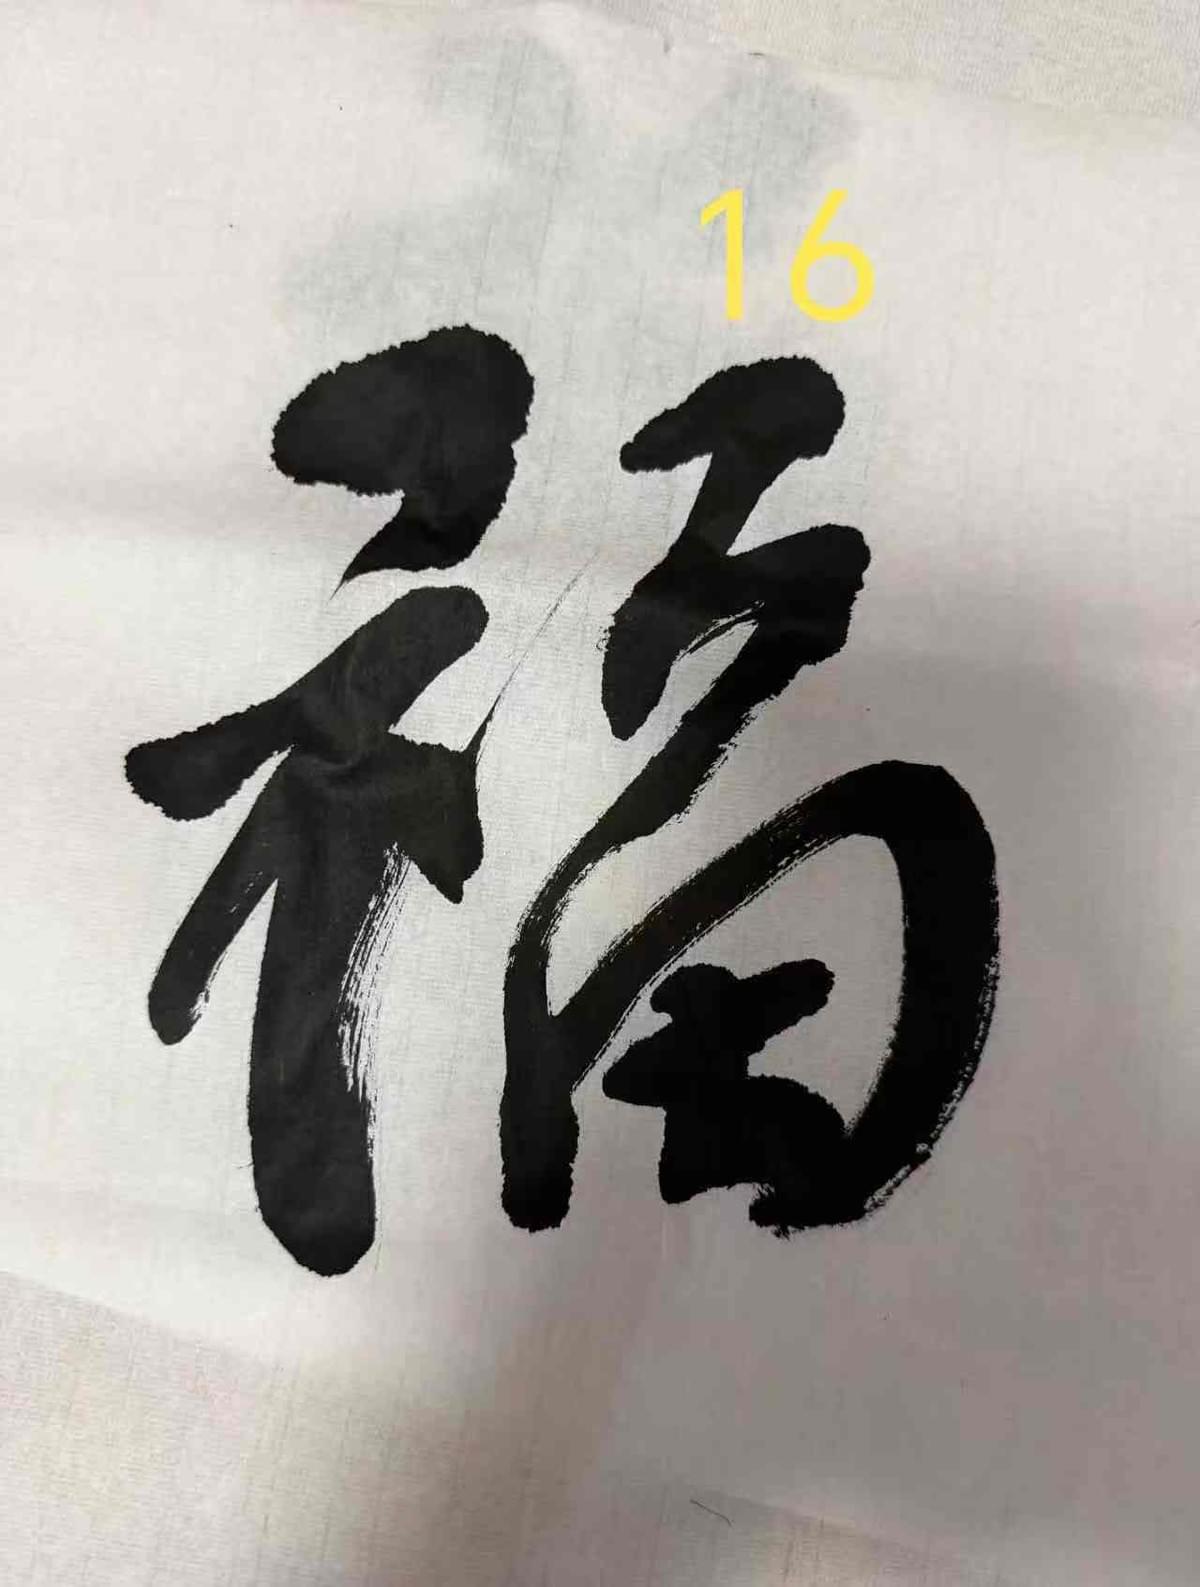 16
福